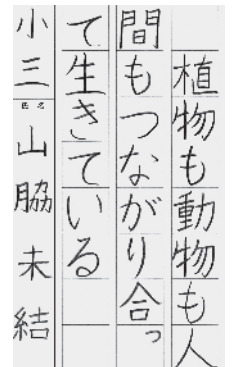 植物も動物も人
間もつながり合っ
て生きている
小三 氏名 山脇未結